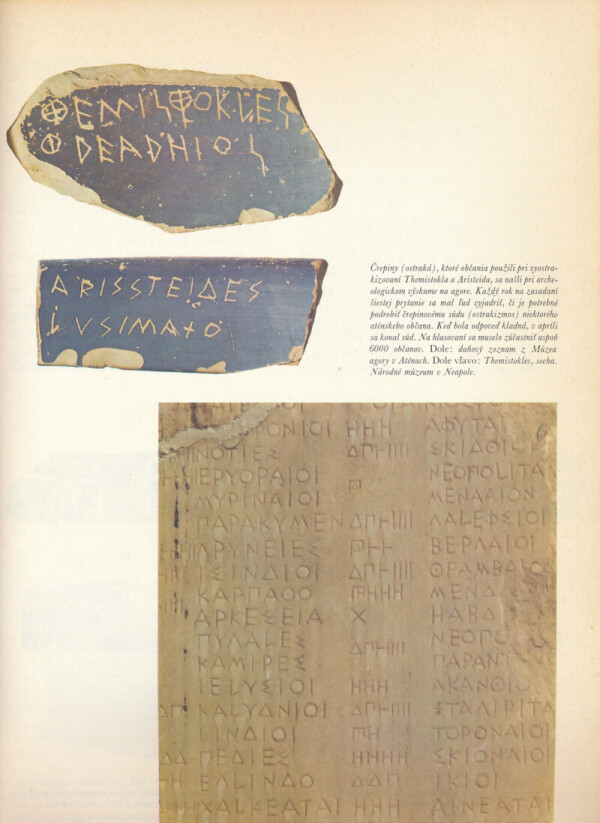 ΘEMISΘOKLES
ΘDEADHIOS
ARISSTEIΔES
LUSIMAXO
Črepiny (ostraká), ktoré občania použili pri vyostra-
kizovaní Themistokla a Aristeida, sa našli pri arche-
ologickom výskume na agore. Každý rok na zasadaní
šiestej prytanie sa mal ľud vyjadriť, či je potrebné
podrobiť črepinovému súdu (ostrakizmos) niektorého
aténskeho občana. Keď bola odpoveď kladná, v apríli
sa konal súd. Na hlasovaní sa muselo zúčastniť aspoň
6000 občanov. Dole: daňový zoznam z Múzea
agory v Aténach. Dole vľavo: Themistokles, socha.
Národné múzeum v Neapole.
ΗΗΗ ΑΦΥΤΑΙ
ΝΟΤΙΕΣ ΔΠΗΙΙΙ ΣΚΙΑΘΙΟΙ
ΕΡΥΘΡΑΙΟΙ ΝΕΟΠΟLΙΤΑ
ΜΥΡΙΝΑΙΟΙ ΜΕΝΔΑΙΟΝ
ΠΑΡΑΚΥΜΕΝ ΔΠΗΙΙΙΙ
ΛΡΥΝΕΙΕΣ ΒΕΡΛΑΙΟΙ
ΙΣΙΝΔΙΟΙ ΔΠΗΙΙΙΙ ΘΡΑΜΒΑΙΟΙ
ΚΑΡΠΑΘΟ ΜΕΝΔ
ΑΡΚΕΣΕΙΑ Χ
ΠΥΛΑLΕΣ ΝΕΟΠΟ
ΚΑΜΙΡΕΣ ΔΠΗΙΙΙ ΠΑΡΑΝΤ
ΙΕLΥΣΙΟΙ ΗΗΗ ΑΚΑΝΘΙΟ
ΚΑLΥΔΝΙΟΙ ΔΠΗΙΙΙΙ ΣΤΑΛΙΡΙΤΑ
LΙΝΔΙΟΙ ΠΗ ΤΟΡΟΝΑΙΟΙ
ΠΕΔΙΕΣ ΗΗΗΗ ΣΚΙΟΝΑΙΟΙ
ΕΛLΙΝΔΟ ΔΔΠ ΙΚΙΟΙ
ΧΑLΚΕΑΤΑΙ ΗΗΗ ΑΙΝΕΑΤΑΙ